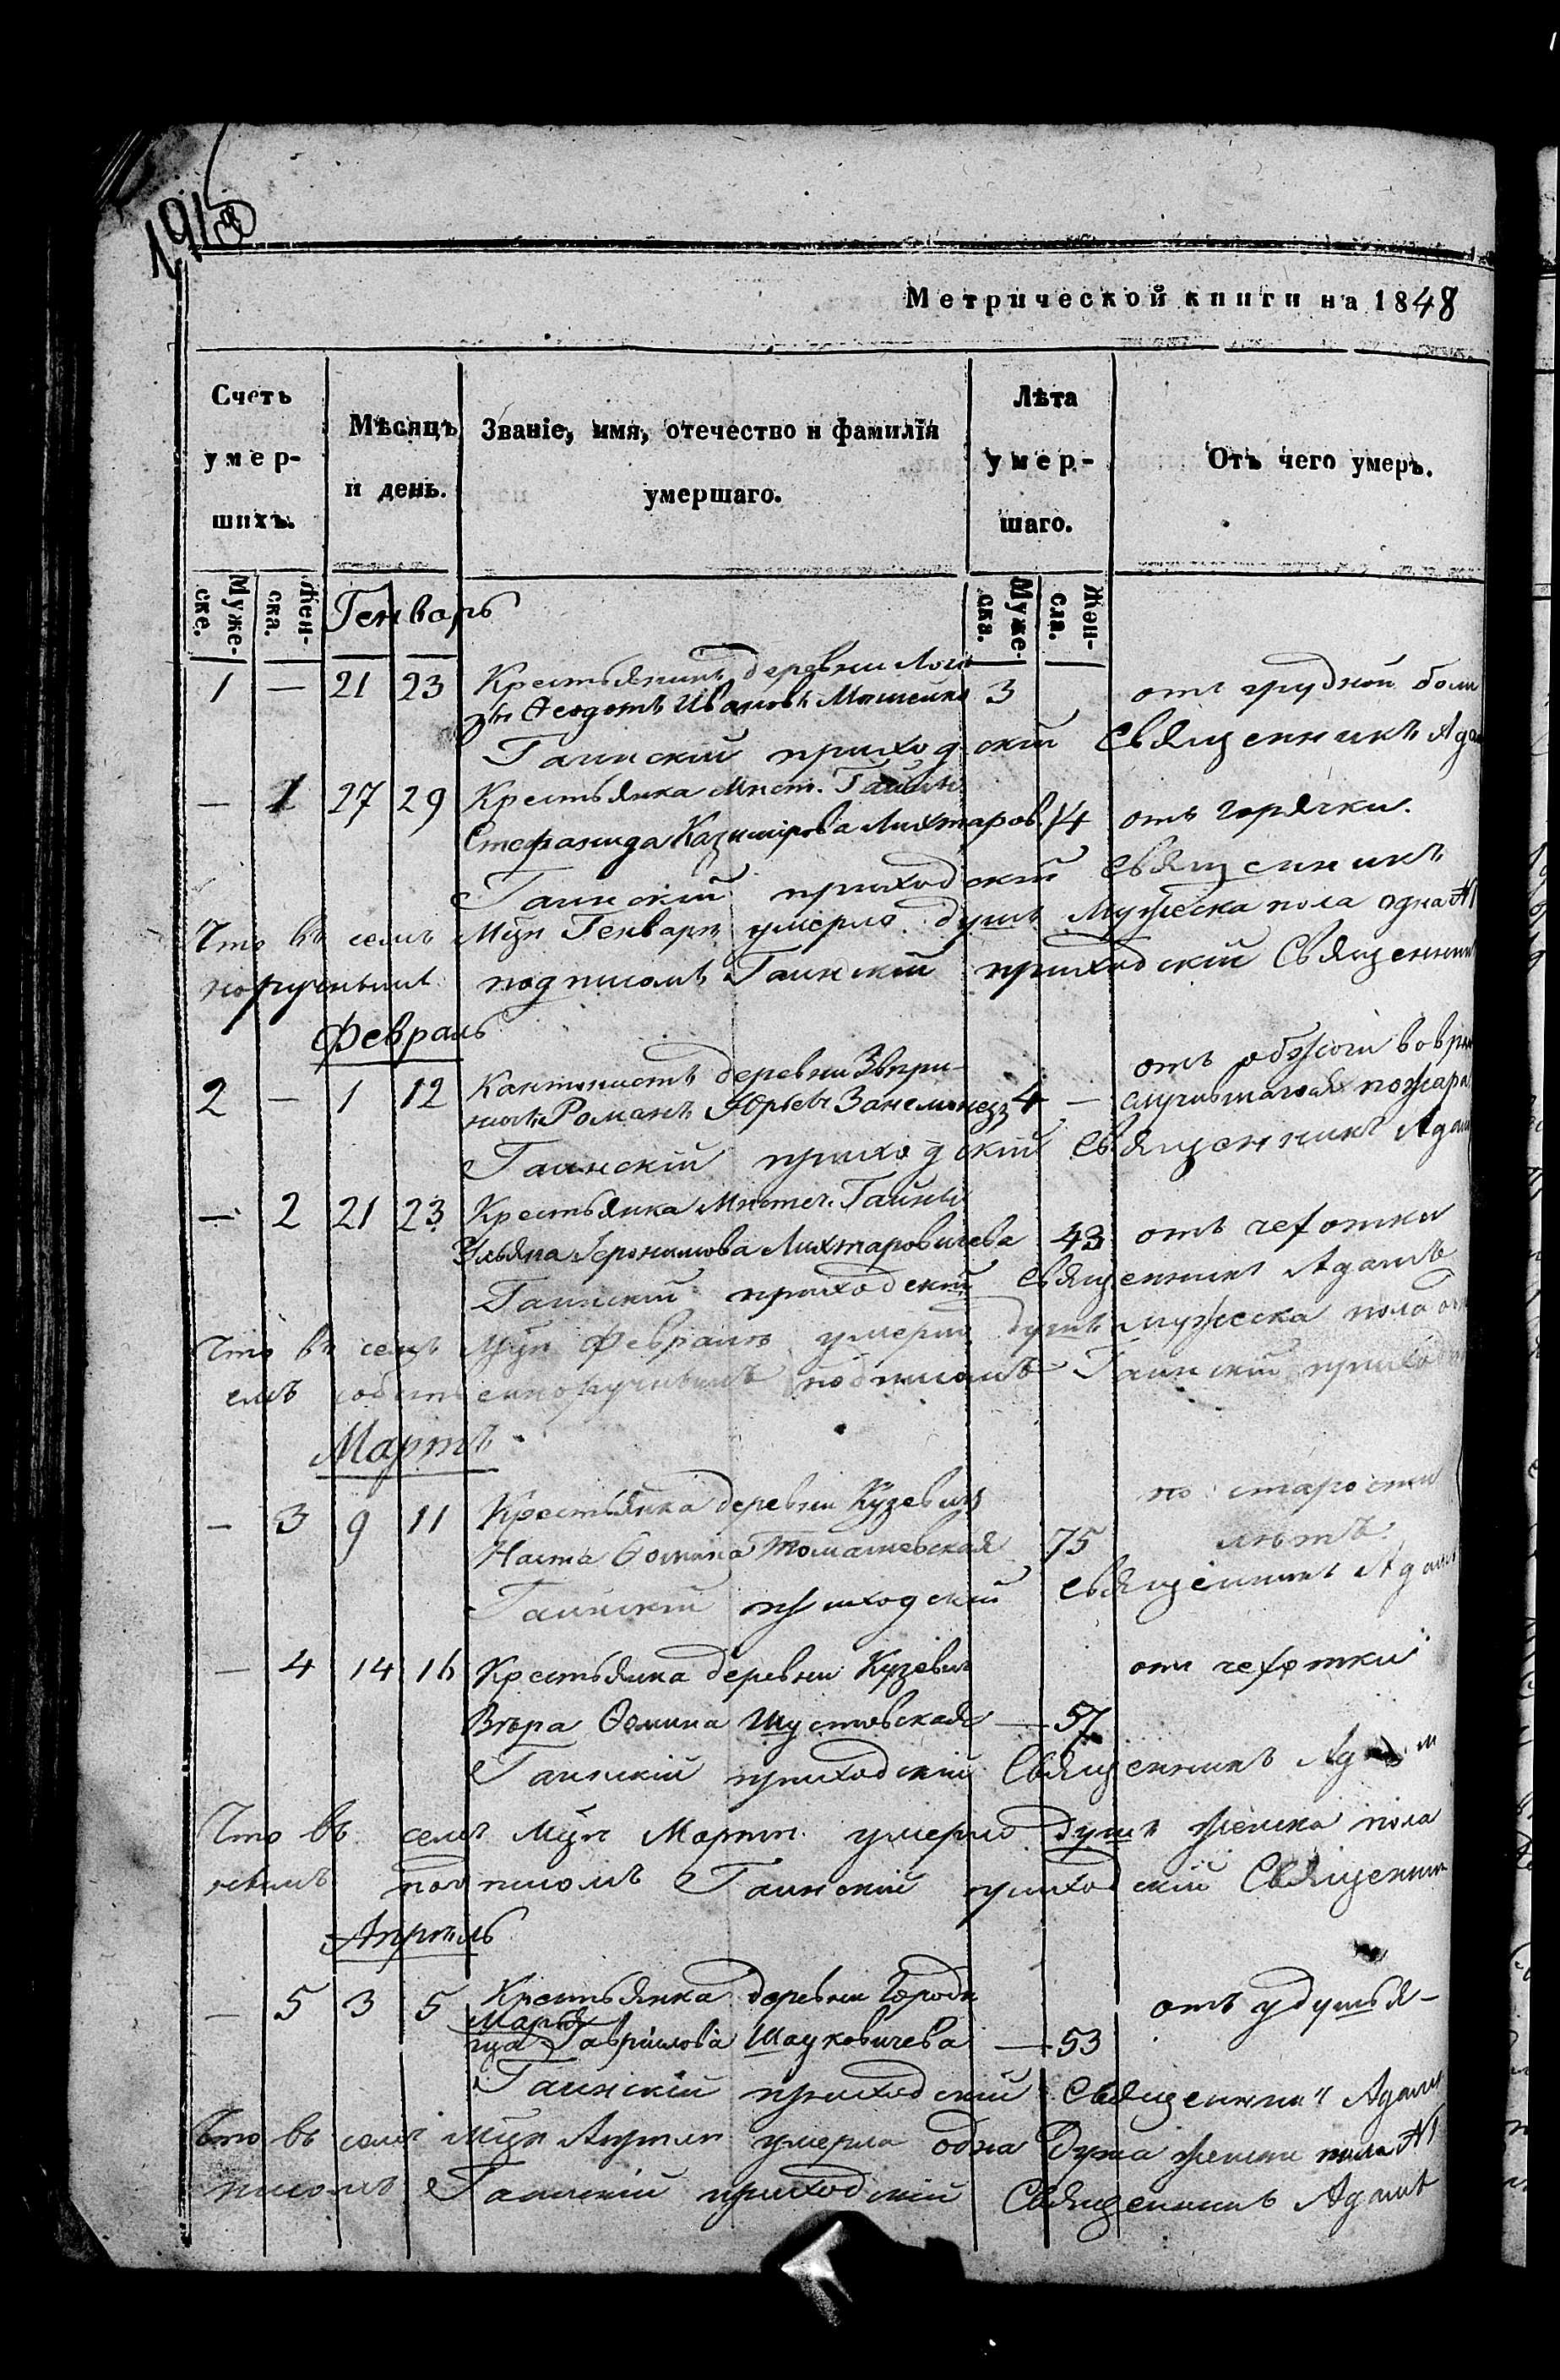 Метрической книги на 1848
Счетъ умер-шихъ.
Мѣсяцъ и день.
Званіе, имя, отечество и фамилія умершаго.
Лѣта умер-шаго.
Отъ чего умеръ.
Муже-ске.
Жен-ска.
Муже-ска.
Жен-ска.
Генварь
1 — 21 23 Крестьянинъ деревни Логи
Ѳеодотъ Ивановъ 3 отъ грудной боли
Гаинскій приходскій Священникъ Адам
— 1 27 29 Крестьянка Мѣст. Гайны
Стефанида Казимірова Лихтаров. 14 отъ горячки.
Гаинскій приходскій Священникъ
Что въ семъ Мцѣ Генварѣ умерло душъ Мужеска пола одна №1
норучнымъ подписомъ Гаинскій приходскій Священник
Февраль
отъ обжоги вовре
2 — 1 12 Кантонистъ деревни Звѣри-
Романъ Юрьевъ 4 — случившагося пожара
Гаинскій приходскій Священникъ Адам
— 2 21 23 Крестьянка Мѣстеч. Гайны
Ульяна Іеронимова Лихтаровичева 43 отъ чехотки
Гаинскій приходскій Священникъ Адамъ
Что въ семъ Мцѣ Февралѣ умерло душъ мужеска пола од
емъ собственоручнымъ подписомъ Гаинскій приход
Мартъ
— 3 9 11 Крестьянка деревни Кузевичъ по старости
Наста Ѳомина Томашевская 75 лѣтъ
Гаинскій приходскій Священникъ Адам
— 4 14 16 Крестьянка деревни Кузевич отъ чехотки
Вѣра Ѳомина Шустовская — 57
Гаинскій приходскій Священникъ Адам
Что въ семъ Мцѣ Мартѣ умерло душъ женска пола
нымъ подписомъ Гаинскій приходскій Священник
Апрѣль
— 5 3 5 Крестьянка деревни Городи отъ удушья —
Марья
ща Гаврилова Шауковичева — 53
Гаинскій приходскій Священникъ Адамъ
Что въ семъ Мцѣ Апрѣлѣ умерла одна Душа женска пола №1
писомъ Гаинскій приходскій Священникъ Адамъ